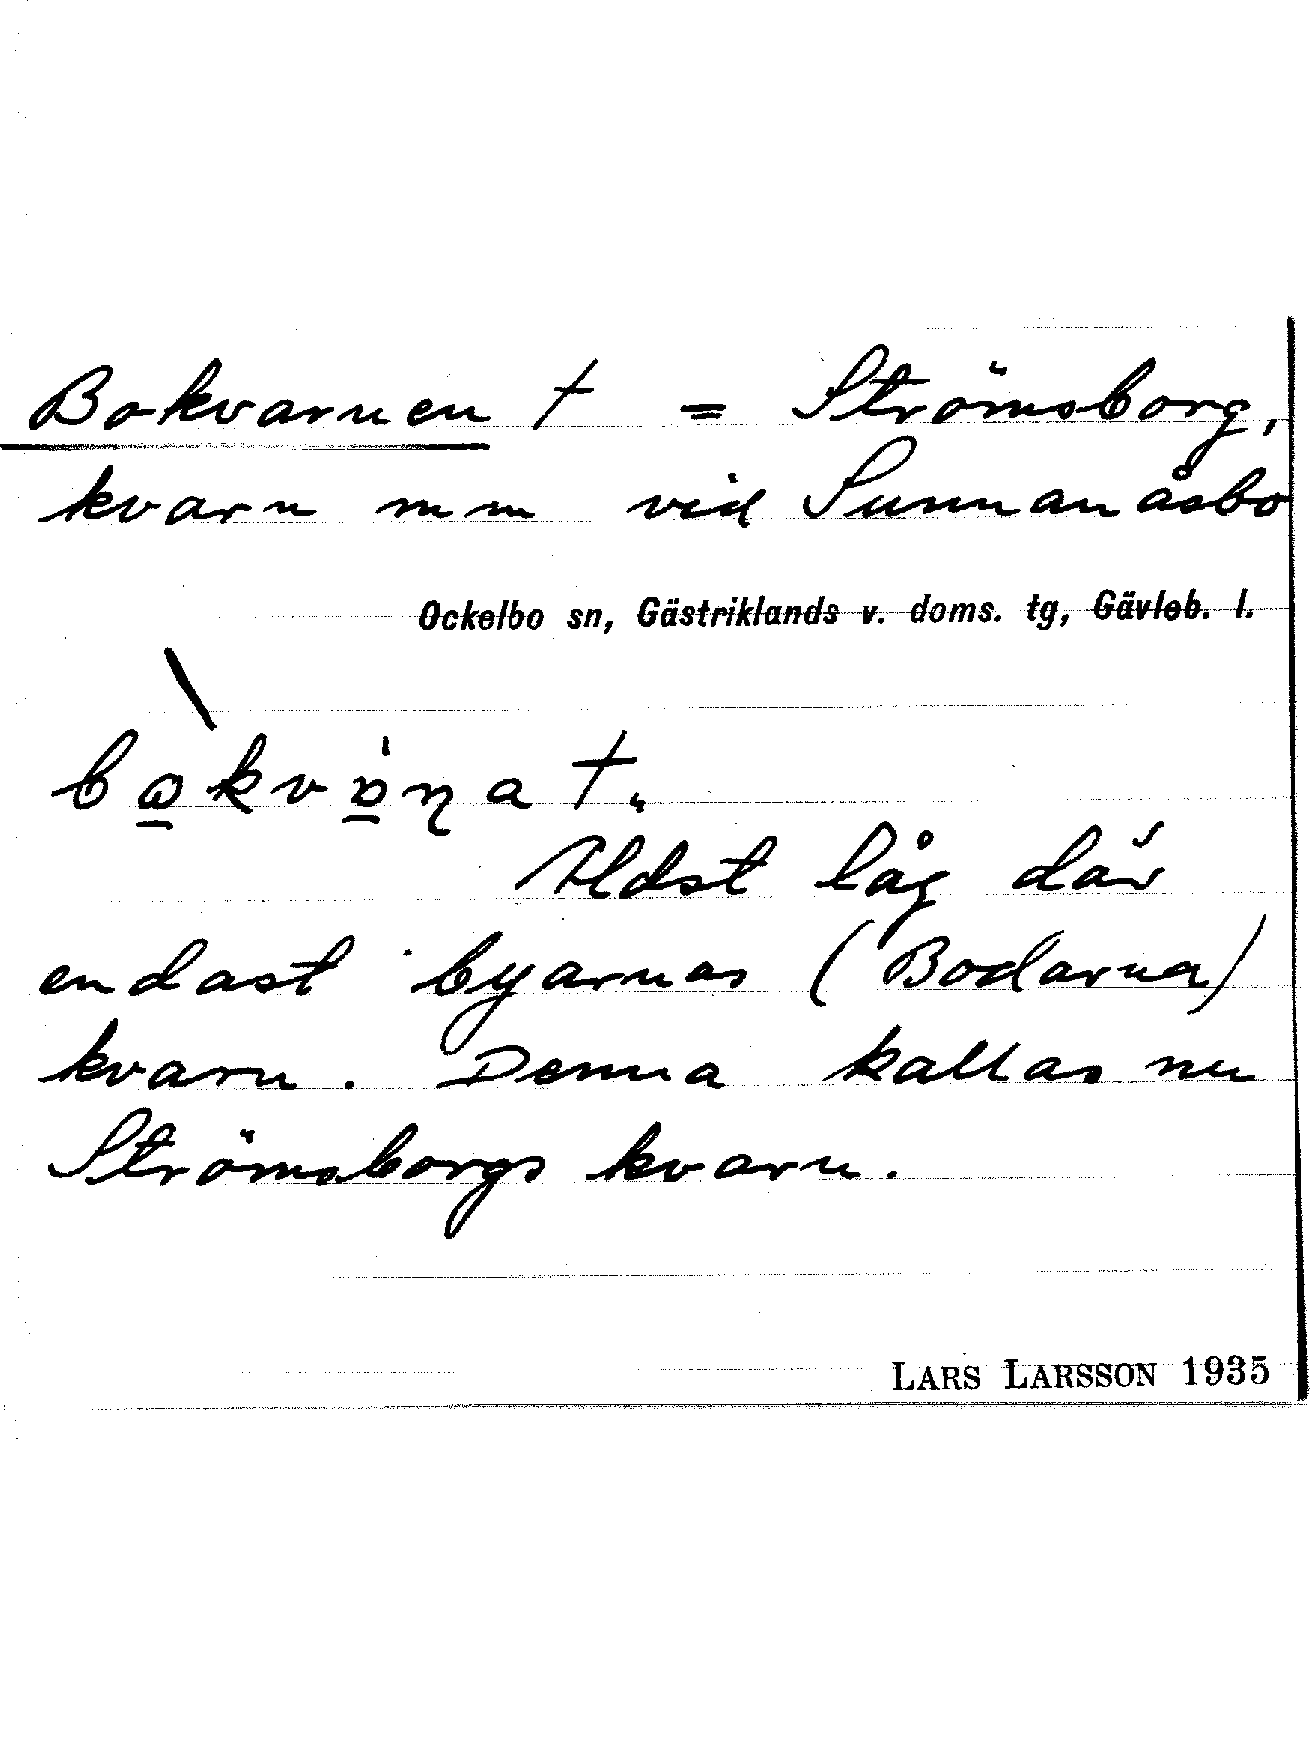 Bokvarnen † = Strömsborg,
kvarn m m vid Sunnanåsbo
Ockelbo sn, Gästriklands v. doms. tg, Gävleb. l.
Äldst låg där
endast byarnas (Bodarna)
kvarn. Denna kallas nu
Strömsborgs kvarn.
LARS LARSSON 1935